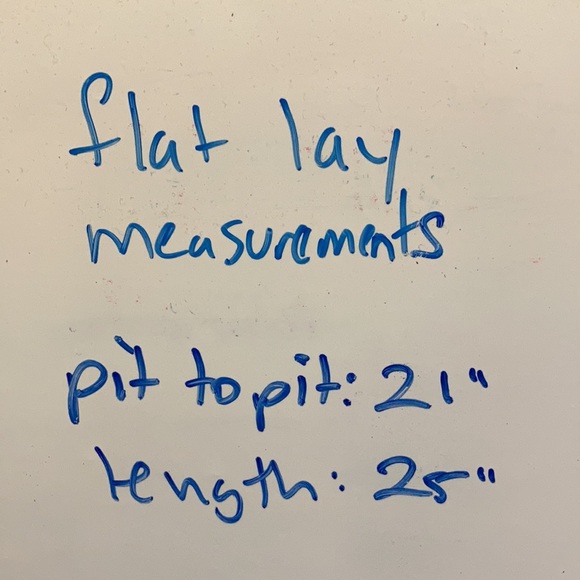 flat lay
measurements
pit to pit: 21"
length: 25"